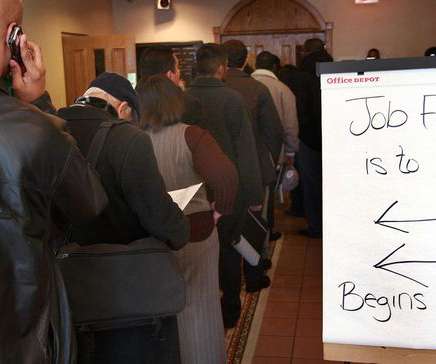 Office DEPOT
Job F
is to
Begins